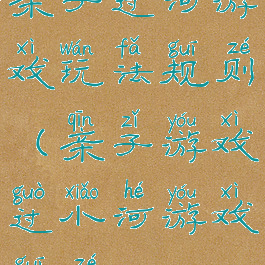 亲子过河游
xì wán fǎ guī zé
戏玩法规则
qīn zǐ yóu xì
（亲子游戏
guò xiǎo hé yóu xì
过小河游戏
guī zé